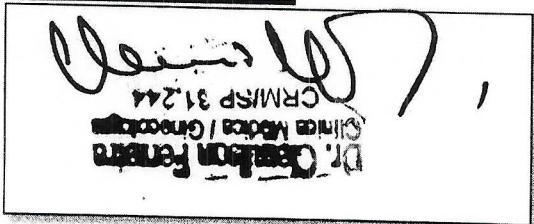 Dr. Cleudson Ferreira
Clínica Médica / Ginecologia
CRM/SP 31.244